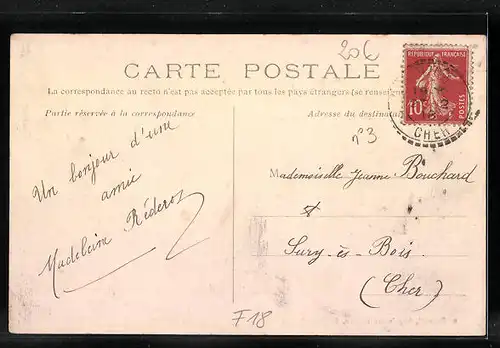 20€
CARTE POSTALE
La correspondance au recto n'est pas acceptée par tous les pays étrangers (se renseigner
Partie réservée à la correspondance
Adresse du destinat
RÉPUBLIQUE FRANÇAISE
10c
POSTES
CHER
n°3
Un bonjour d'une
amie
Madeleine
Mademoiselle Jeanne Bouchard
Sury-ès-Bois
(Cher)
F18